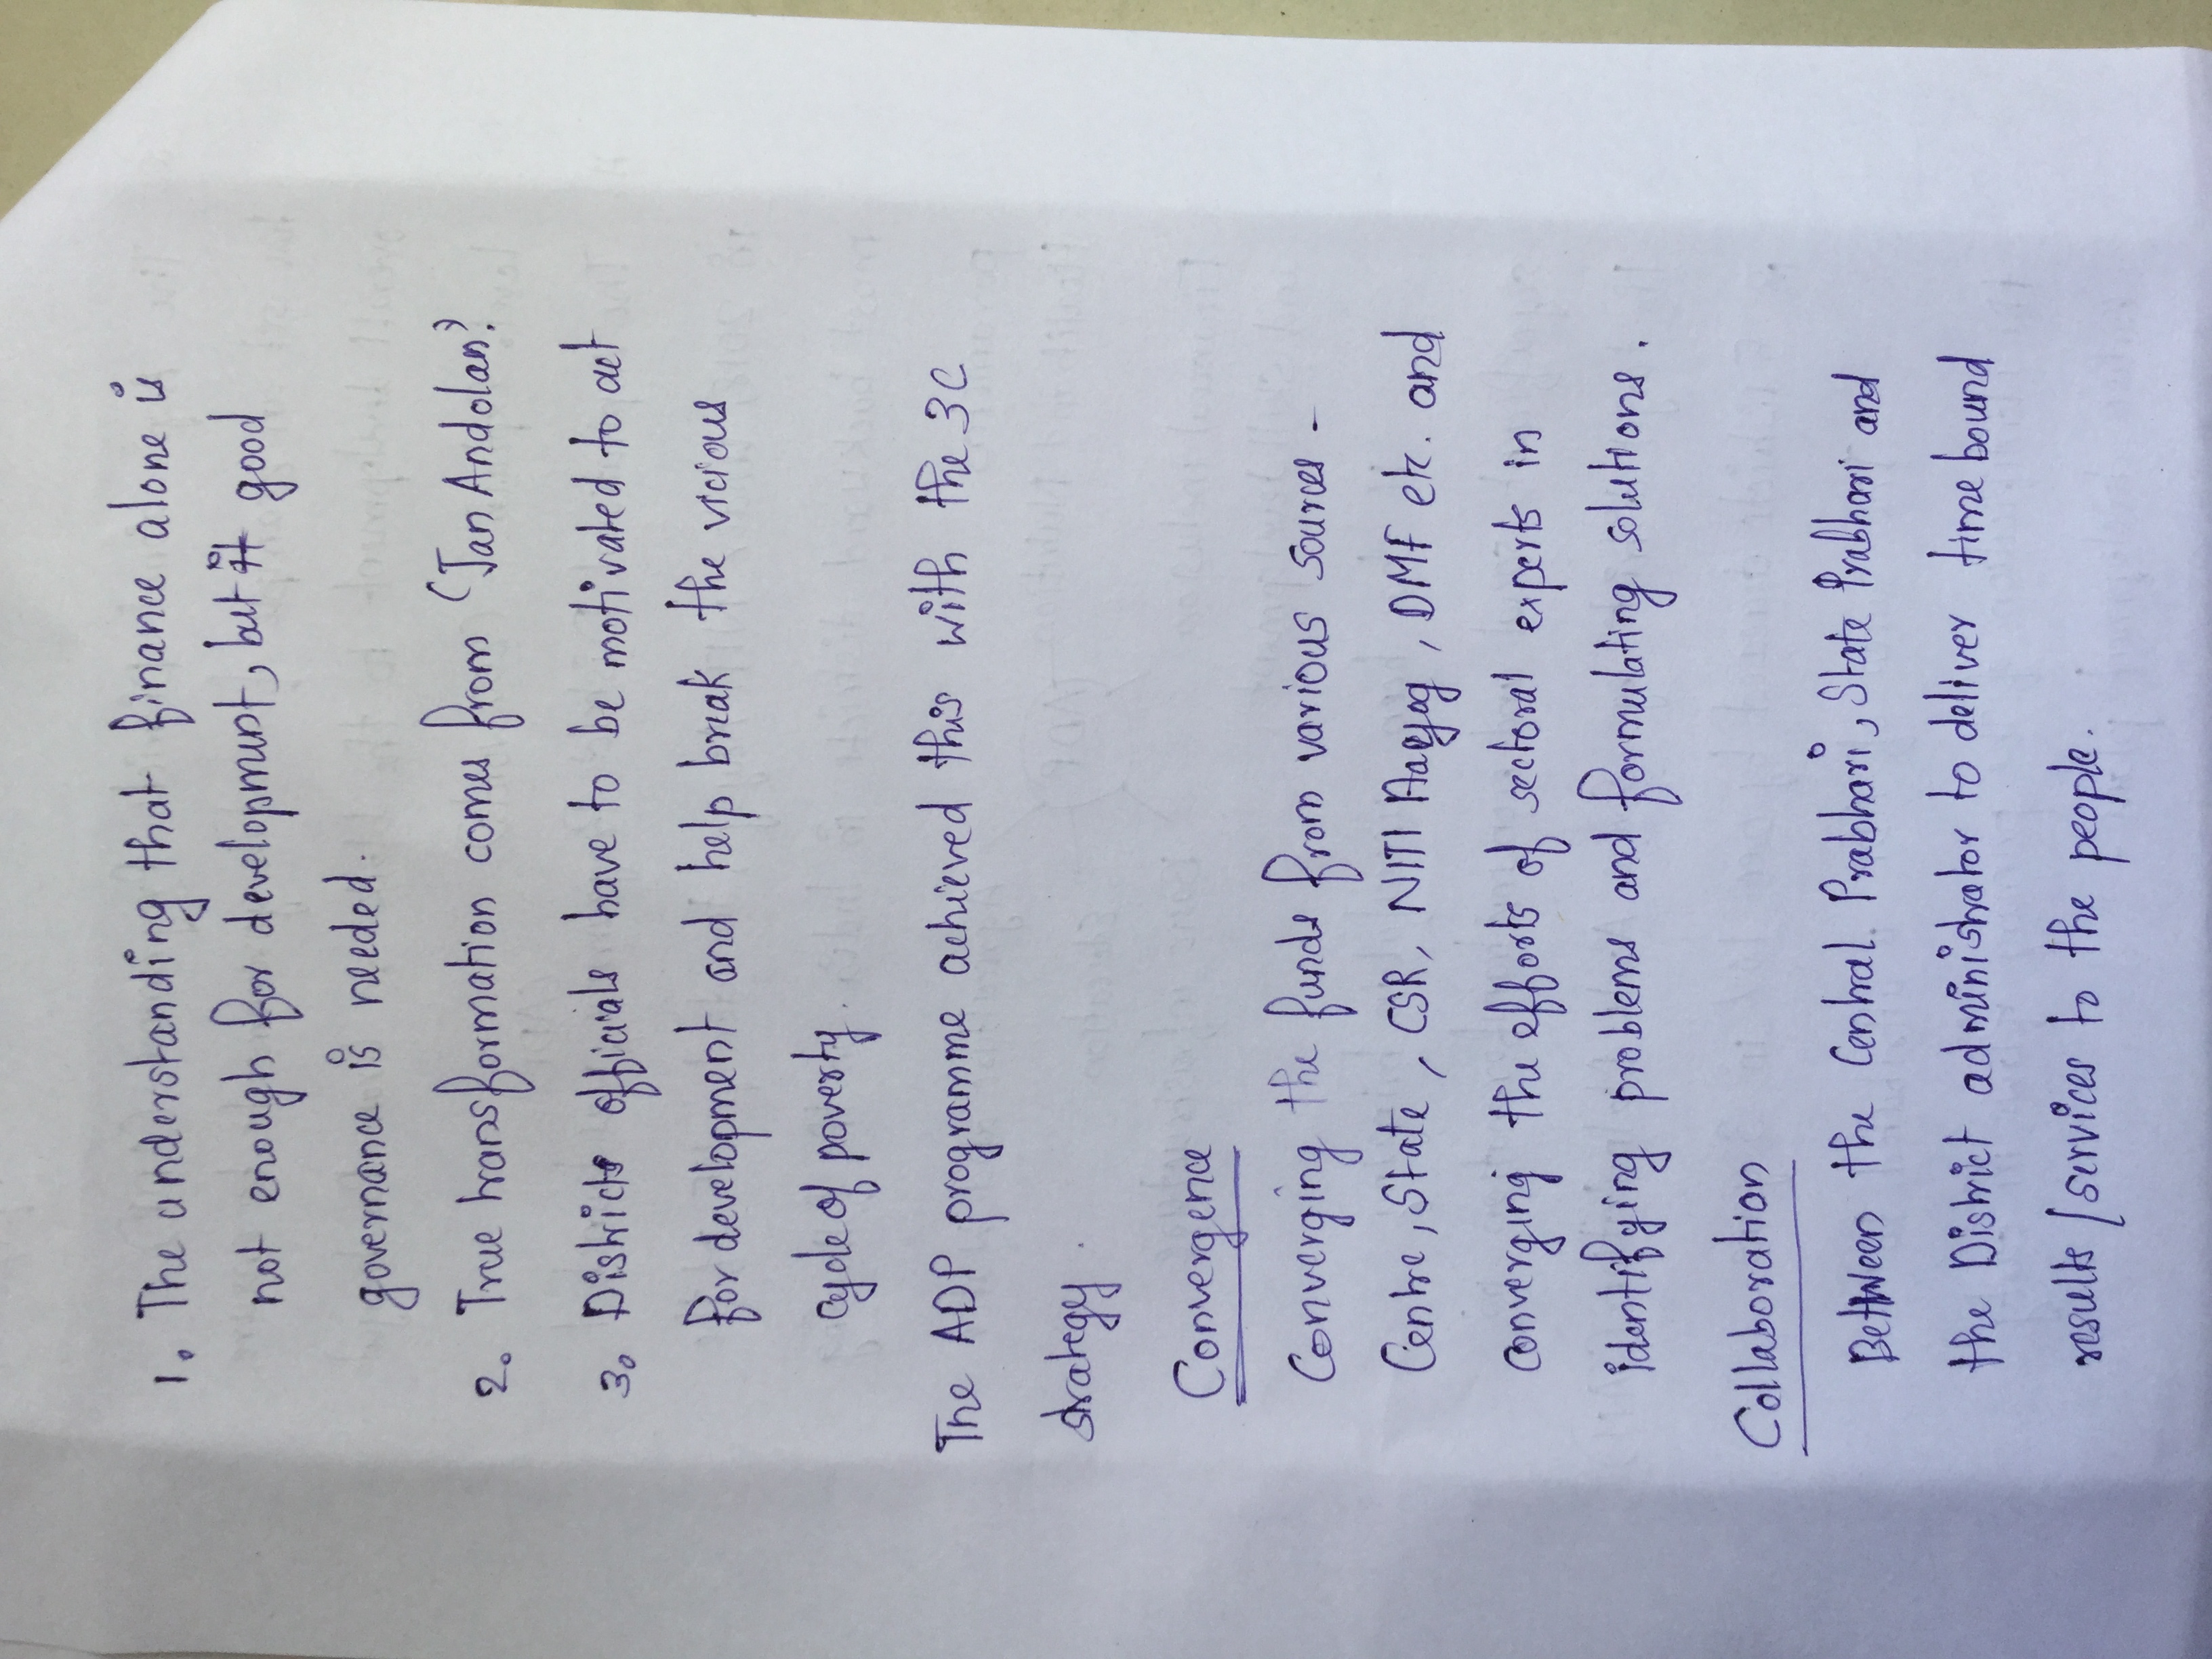 1. The understanding that finance alone is
not enough for development, but it good
governance is needed.
2. True transformation comes from 'Jan Andolan'.
3. Districts officials have to be motivated to act
for development and help break the vicious
cycle of poverty.
The ADP programme achieved this with the 3C
strategy.
Convergence
Converging the funds from various sources -
Centre, State, CSR, NITI Aayog, DMF etc. and
converging the efforts of sectoral experts in
identifying problems and formulating solutions.
Collaboration
Between the Central Prabhari, State Prabhari and
the District administrator to deliver time bound
results / services to the people.